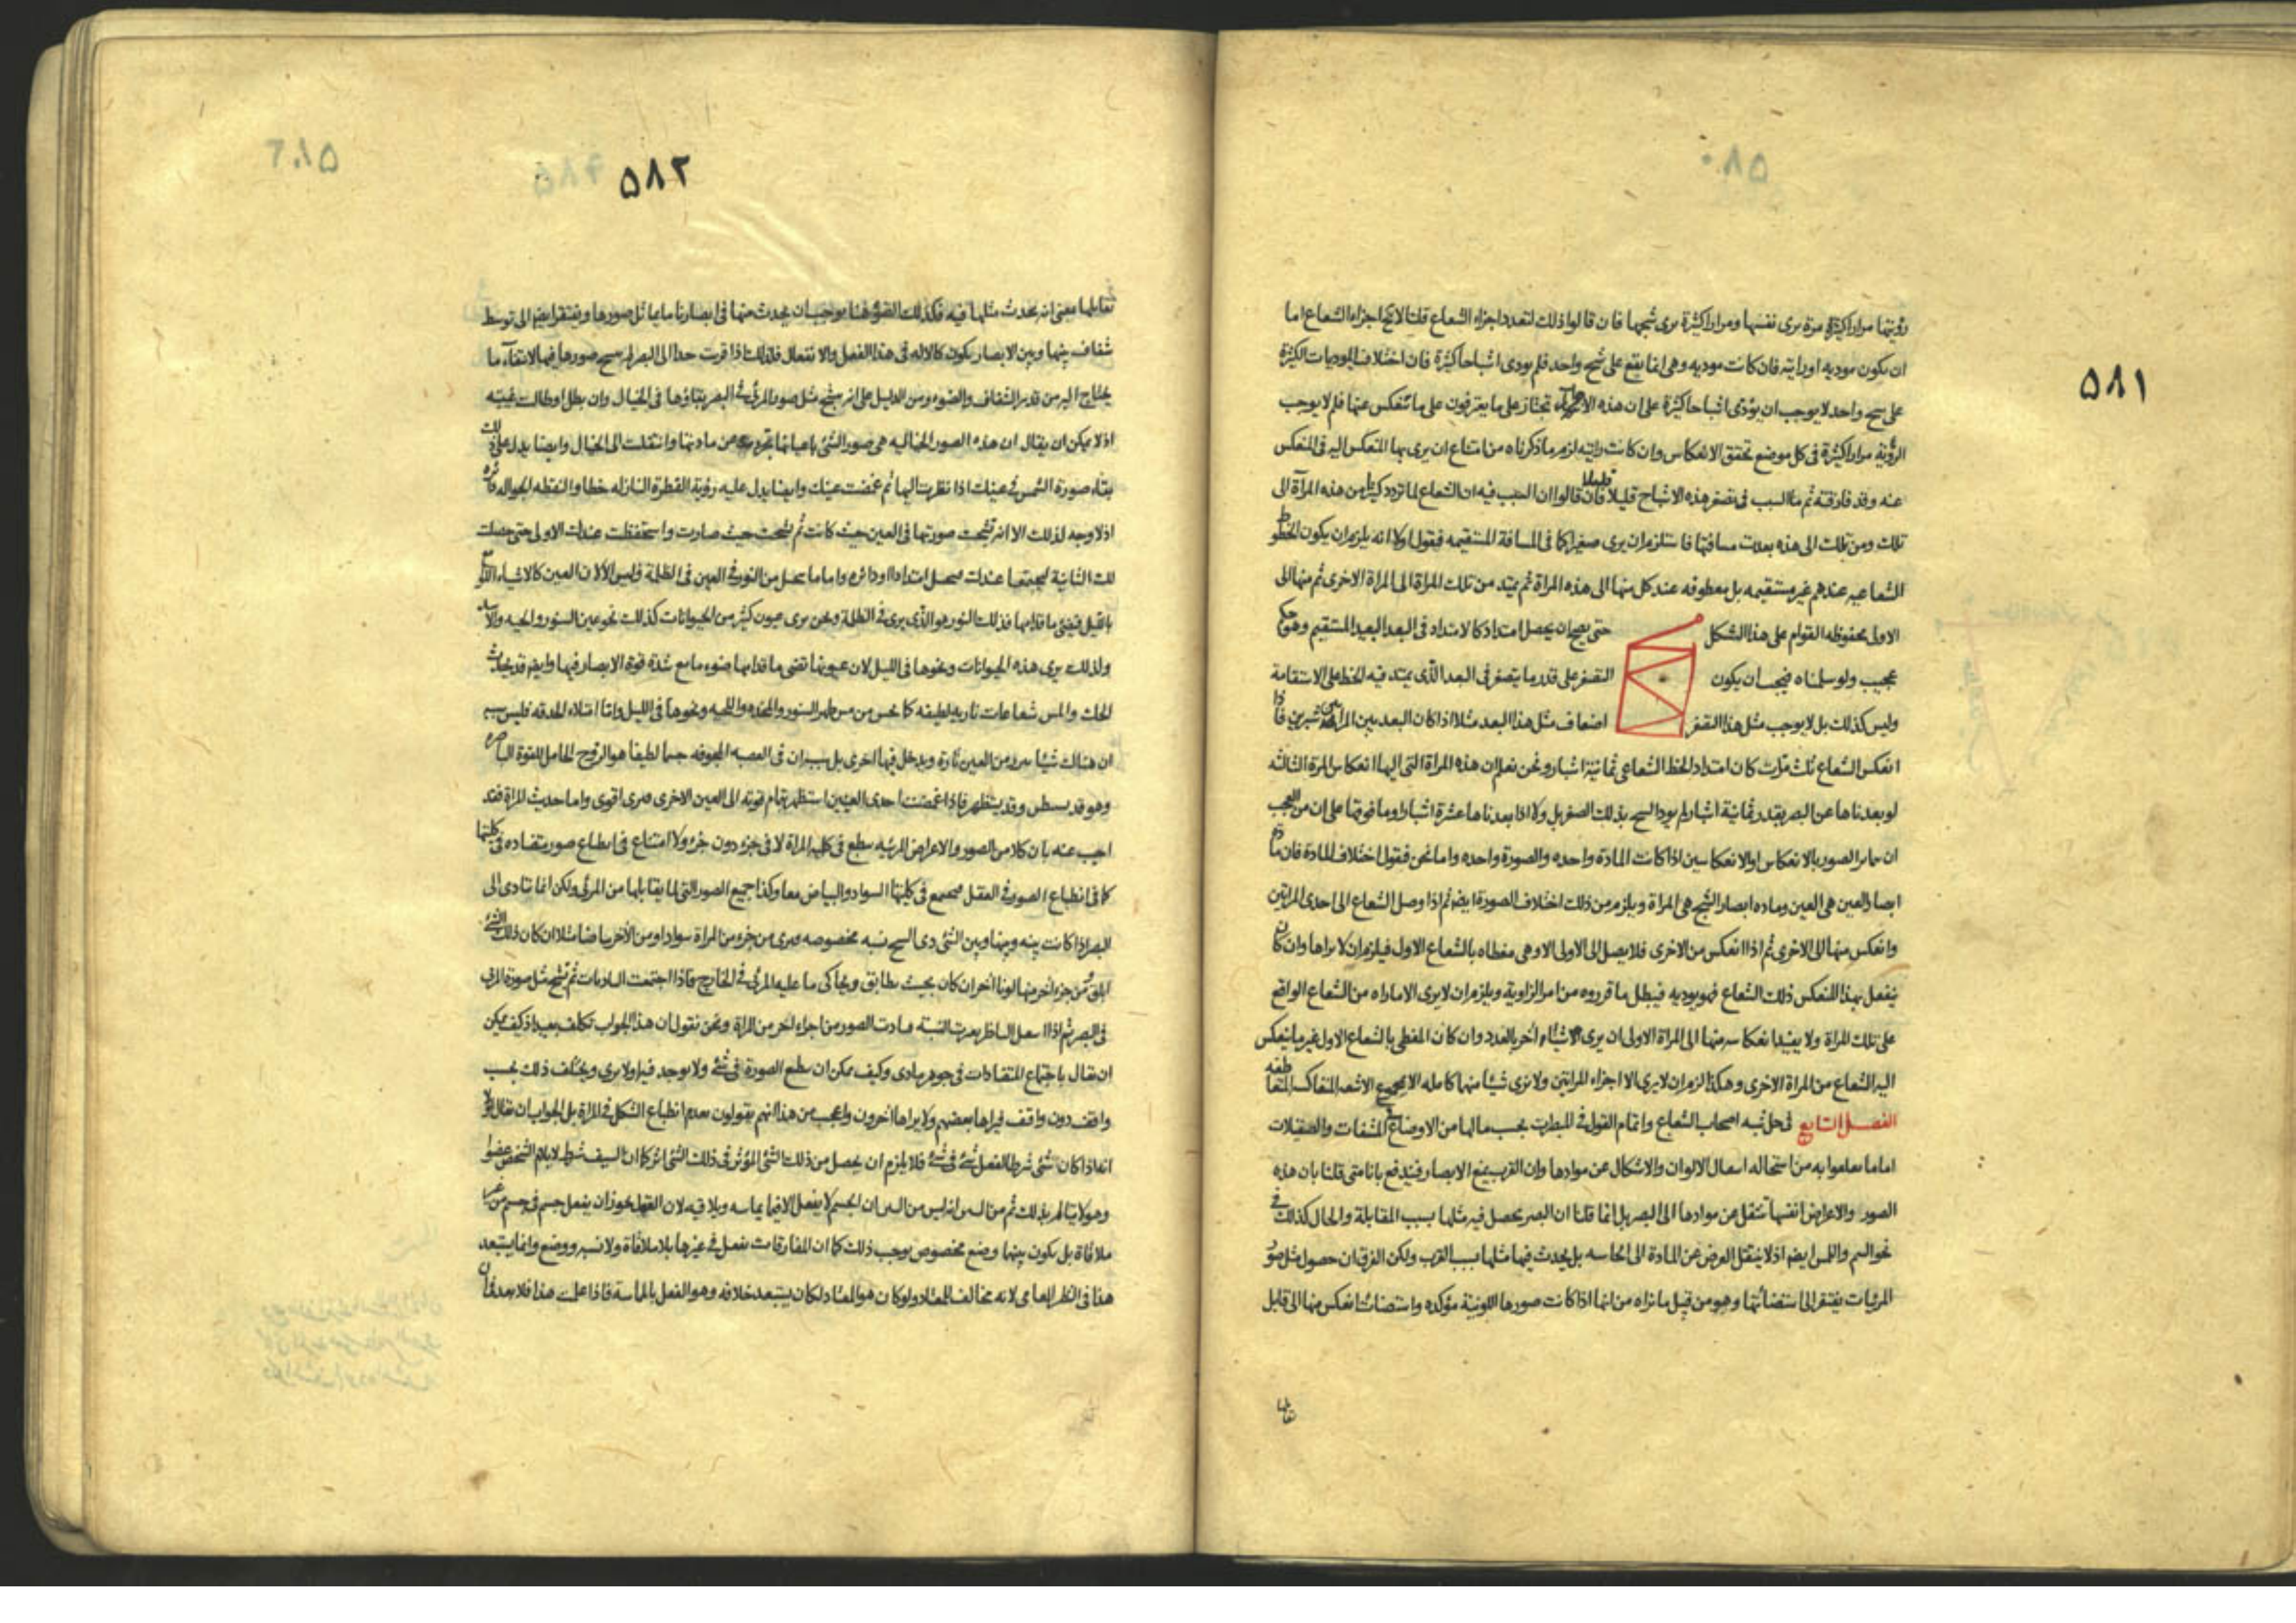 ٥٨١
رؤيتها مرارا كثيرة مرة يرى نفسها ومرارا كثيرة يرى شبحها فان قالوا ذلك لتعدد اجزاء الشعاع قلنا لا اجزاء الشعاع اما
ان يكون موديه او رايته فان كانت موديه وهى انما يقع على شبح واحد فلم يودى اشباحا كثيرة فان اختلاف الموديات الكثيرة
على شبح واحد لا يوجب ان يؤدى اشباحا كثيرة على ان هذه تجتاز على ما يعترفون على ما تنعكس عنها فلم لا يوجب
الرؤية مرارا كثيرة فى كل موضع تحقق الانعكاس وان كانت رايته لزم ما ذكرناه من امتناع ان يرى بها المنعكس اليه فى المنعكس
عنه وقد فارقته ثم ما السبب فى تصغر هذه الاشباح قليلا قليلا فان قالوا ان السبب فيه ان الشعاع لما تردد كثيرا من هذه المرآة الى
تلك ومن تلك الى هذه بعدت مسافتها فاستلزم ان يرى صغيرا كما فى المسافة المستقيمه فيقول اولا انه يلزم ان يكون الخطوط
الشعاعيه عندهم غير مستقيمه بل معطوفه عند كل منها الى هذه المراة ثم يمتد من تلك المراة الى المراة الاخرى ثم منها الى
الاولى محفوظه القوام على هذا الشكل حتى يصح ان يحصل امتداد كالامتداد فى البعد البعيد المستقيم وهو حكم
عجيب ولو سلمناه فيجب ان يكون التصغر على قدر ما يتصغر فى البعد الذى يمتد فيه الخط على الاستقامة
وليس كذلك بل لا يوجب مثل هذا التصغر اضعاف مثل هذا البعد مثلا اذا كان البعد بين شبرين فاذا
انعكس الشعاع ثلث مرات كان امتداد الخط الشعاعى ثمانية اشبار ونحن نعلم ان هذه المراة التى اليها انعكاس المرة الثالثه
لو بعدناها عن البصر بقدر ثمانية اشبار لم يود الشبح بذلك الصغر بل ولا اذا بعدناها عشرة اشبار وما فوقها على ان من العجب
ان الصور بالانعكاس او الانعكاسين اذا كانت المادة واحده والصورة واحده واما نحن فيقول اختلاف المادة فان مادة
ابصار العين هى العين وماده ابصار الشبح هى المراة ويلزم من ذلك اختلاف الصورة ايضا ثم اذا وصل الشعاع الى احدى المراتين
وانعكس منها الى الاخرى ثم اذا انعكس من الاخرى فلا يصل الى الاولى الا وهى مغطاه بالشعاع الاول فيلزم ان لا يراها وان كان
ينفعل بهذا المنعكس ذلك الشعاع فهو يوديه فيبطل ما قرروه من امر الزاوية ويلزم ان لا يرى الا ما راه من الشعاع الواقع
على تلك المراة ولا يفيد انعكاسه منها الى المراة الاولى ان يرى الاشياء اخر بالعدد وان كان المغطى بالشعاع الاول غير ما ينعكس
اليه الشعاع من المراة الاخرى وهكذا لزم ان لا يرى الا اجزاء المراتين ولا نرى شيئا منها كامله
الفصل السابع فى حل شبه اصحاب الشعاع واتمام القول فى المبصرات بحسب مالها من الاوضاع المشفات والصقيلات
اما ما من استحاله انتقال الالوان والاشكال عن موادها وان القرب يمنع الابصار فيندفع بانا متى قلنا بان هذه
الصور والاعراض انفسها تنتقل عن موادها الى البصر بل انما قلنا ان البصر يحصل فيه مثلها بسبب المقابلة والحال كذلك فى
نحو الشم واللمس ايضا اذ لا ينتقل العرض عن المادة الى الحاسه بل يحدث فيها مثلها بسبب القرب ولكن الفرق ان حصول مثل صور
المرئيات يفتقر الى استضائتها وهو من قبل ما نراه من انها اذا كانت صورها اللونية مؤكده واستضائت انعكس منها الى قابل
تقابلها
٥٨٢
تقابلها بمعنى انه يحدث مثلها فيه فكذلك الضوء هنا يوجب ان يحدث منها فى ابصارنا ما يماثل صورها ويفتقر ايضا الى توسط
شفاف بينها وبين الابصار يكون كالاله فى هذا الفعل والانفعال فلذلك اذا قربت جدا الى البصر لم صورها فيها لانتفاء ما
يحتاج اليه من قدر الشفاف والضوء ومن الدليل على انه يشبح مثل صور المرئى فى البصر بقاؤها فى الخيال وان بطل او طالت غيبته
اذ لا يمكن ان يقال ان هذه الصور الخياليه هى صور الشئ باعيانها تجردت عن مادتها وانتقلت الى الخيال وايضا يدل على ذلك
بقاء صورة الشمس فى عينك اذا نظرت اليها ثم غمضت عينك وايضا يدل عليه رؤية القطرة النازله خطا والنقطه الجواله دائره
اذ لا وجه لذلك الا انه تشبحت صورتها فى العين حيث كانت ثم تشبحت حيث صارت واستحفظت عندك الاولى حتى حصلت
لك الثانية ليجتمعا عندك امتدادا او دائره واما ما من النور فى العين فى الظلمة فليس الا لان العين كالاشياء
بالليل فيضئ ما قدامها فذلك النور هو الذى يرى فى الظلمة ونحن نرى عيون كثير من الحيوانات كذلك نحو عين السنور والحيه والاسد
ولذلك يرى هذه الحيوانات ونحوها فى الليل لان عيونها تضئ ما قدامها ضوء ما مع شدة قوة الابصار فيها وايضا قد يحدث
الحك واللمس شعاعات ناريه لطيفه كما يحس من مس ظهر السنور والمخده واللحيه ونحوها فى الليل واما امتلاء الحدقه فليس
ان هناك شيئا من العين تارة ويدخل فيها اخرى بل ان فى العصبه المجوفه جسما لطيفا هو الروح الحامل للقوة الباصره
وهو قد وقد يستظهر فاذا غمضت احدى العينين استظهر بتمام قوته الى العين الاخرى فيرى اقوى واما حديث المراة فقد
اجيب عنه بان كلا من الصور والاعراض المرئيه ينطبع فى كليه المراة لا فى جزء دون جزء ولا امتناع فى انطباع صور متضاده فى كليتها
كما فى انطباع الصور فى العقل فى كليتها السواد والبياض معا وكذا جميع الصور التى لما يقابلها من المرئى ولكن انما تتادى الى
البصر اذا كانت بينه وبينها وبين الشئ ذى الشبح نسبه مخصوصه فيرى من جزء من المراة سوادا ومن الاخر بياضا مثلا ان كان ذلك الشئ
ابلق ومن جزء اخر منها لونا اخر ان كان بحيث يطابق ويحاكى ما عليه المرئى فى الخارج فاذا اجتمعت ثم تشبح مثل صورة المرئى
فى البصر ثم اذا الناظر تغيرت النسبة الصور من اجزاء اخر من المراة ونحن نقول ان هذا الجواب تكلف بعيد اذ كيف يمكن
ان يقال باجتماع المتضادات فى جوهر مادى وكيف يمكن ان ينطبع الصورة فى شئ ولا يوجد فيه اولا يرى ويختلف ذلك بحسب
واقف دون واقف فيراها بعضهم ولا يراها آخرون واعجب من هذا انهم يقولون بعدم انطباع الشكل فى المراة بل الجواب ان يقال اولا
انه اذا كان شئ شرطا لفعل شئ فى شئ فلا يلزم ان يحصل من ذلك الشئ المؤثر فى ذلك الشئ اثر كما ان السيف شرط لايلام الشخص عضوا
وهو لا يتالم بذلك ثم من انه ليس من ان الجسم لا يفعل الا فيما يماسه ويلاقيه لان العقل يجوز ان يفعل جسم فى جسم من غير
ملاقاة بل يكون بينهما وضع مخصوص يوجب ذلك كما ان المفارقات يفعل فى غيرها بلا ملاقاة ولا نسبه ووضع وانما يستبعد
هذا فى النظر العامى لانه مخالف للمعتاد ولو كان هو المعتاد لكان يستبعد خلافه وهو الفعل بالمماسة فاذا علمت هذا فلا بعد فى ان